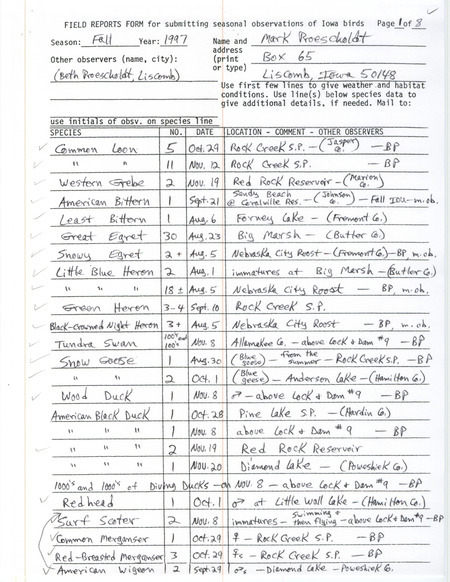 FIELD REPORTS FORM for submitting seasonal observations of Iowa birds Page 1 of 8
Season: Fall Year: 1997 Name and address (print or type) Mark Proescholdt
Box 65
Liscomb, Iowa 50148
Other observers (name, city):
(Beth Proescholdt, Liscomb)
Use first few lines to give weather and habitat
conditions. Use line(s) below species data to
give additional details, if needed. Mail to:
use initials of obsv. on species line
SPECIES NO. DATE LOCATION - COMMENT - OTHER OBSERVERS
Common Loon 5 Oct. 29 Rock Creek S.P. - (Jasper Co.) - BP
" " 11 Nov. 12 Rock Creek S.P. - BP
Western Grebe 2 Nov. 19 Red Rock Reservoir - (Marion Co.)
American Bittern 1 Sept. 21 Sandy Beach @ Coralville Res. - (Johnson Co.) - Fall IOU - m.ob.
Least Bittern 1 Aug. 6 Forney Lake - (Fremont Co.)
Great Egret 30 Aug. 23 Big Marsh - (Butler Co.)
Snowy Egret 2+ Aug. 5 Nebraska City Roost - (Fremont Co.) - BP, m.ob.
Little Blue Heron 2 Aug. 1 immatures at Big Marsh - (Butler Co.)
" " " 18 ± Aug. 5 Nebraska City Roost - BP, m.ob.
Green Heron 3-4 Sept. 10 Rock Creek S.P.
Black-Crowned Night Heron 3+ Aug. 5 Nebraska City Roost - BP, m.ob.
Tundra Swan 100's and 100's Nov. 8 Allamakee Co. - above Lock & Dam #9 - BP
Snow Goose 1 Aug. 30 (Blue goose) - from the summer - Rock Creek S.P. - BP
" " 2 Oct. 1 (Blue geese) - Anderson Lake - (Hamilton Co.)
Wood Duck 1 Nov. 8 ♂ - above Lock & Dam #9 - BP
American Black Duck 1 Oct. 28 Pine Lake S.P. - (Hardin Co.)
" " " 1 Nov. 8 above Lock & Dam #9 - BP
" " " 2 Nov. 19 Red Rock Reservoir
" " " 1 Nov. 20 Diamond Lake - (Poweshiek Co.)
1000's and 1000's of Diving Ducks - on Nov. 8 - above Lock & Dam #9 - BP
Redhead 1 Oct. 1 ♂ at Little Wall Lake - (Hamilton Co.)
Surf Scoter 2 Nov. 8 immatures - swimming & then flying - above Lock & Dam #9 - BP
Common Merganser 1 Oct. 29 ♀ - Rock Creek S.P. - BP
Red-Breasted Merganser 3 Oct. 29 ♀s - Rock Creek S.P. - BP
American Wigeon 2 Sept. 29 ♂s - Diamond Lake - Poweshiek Co.